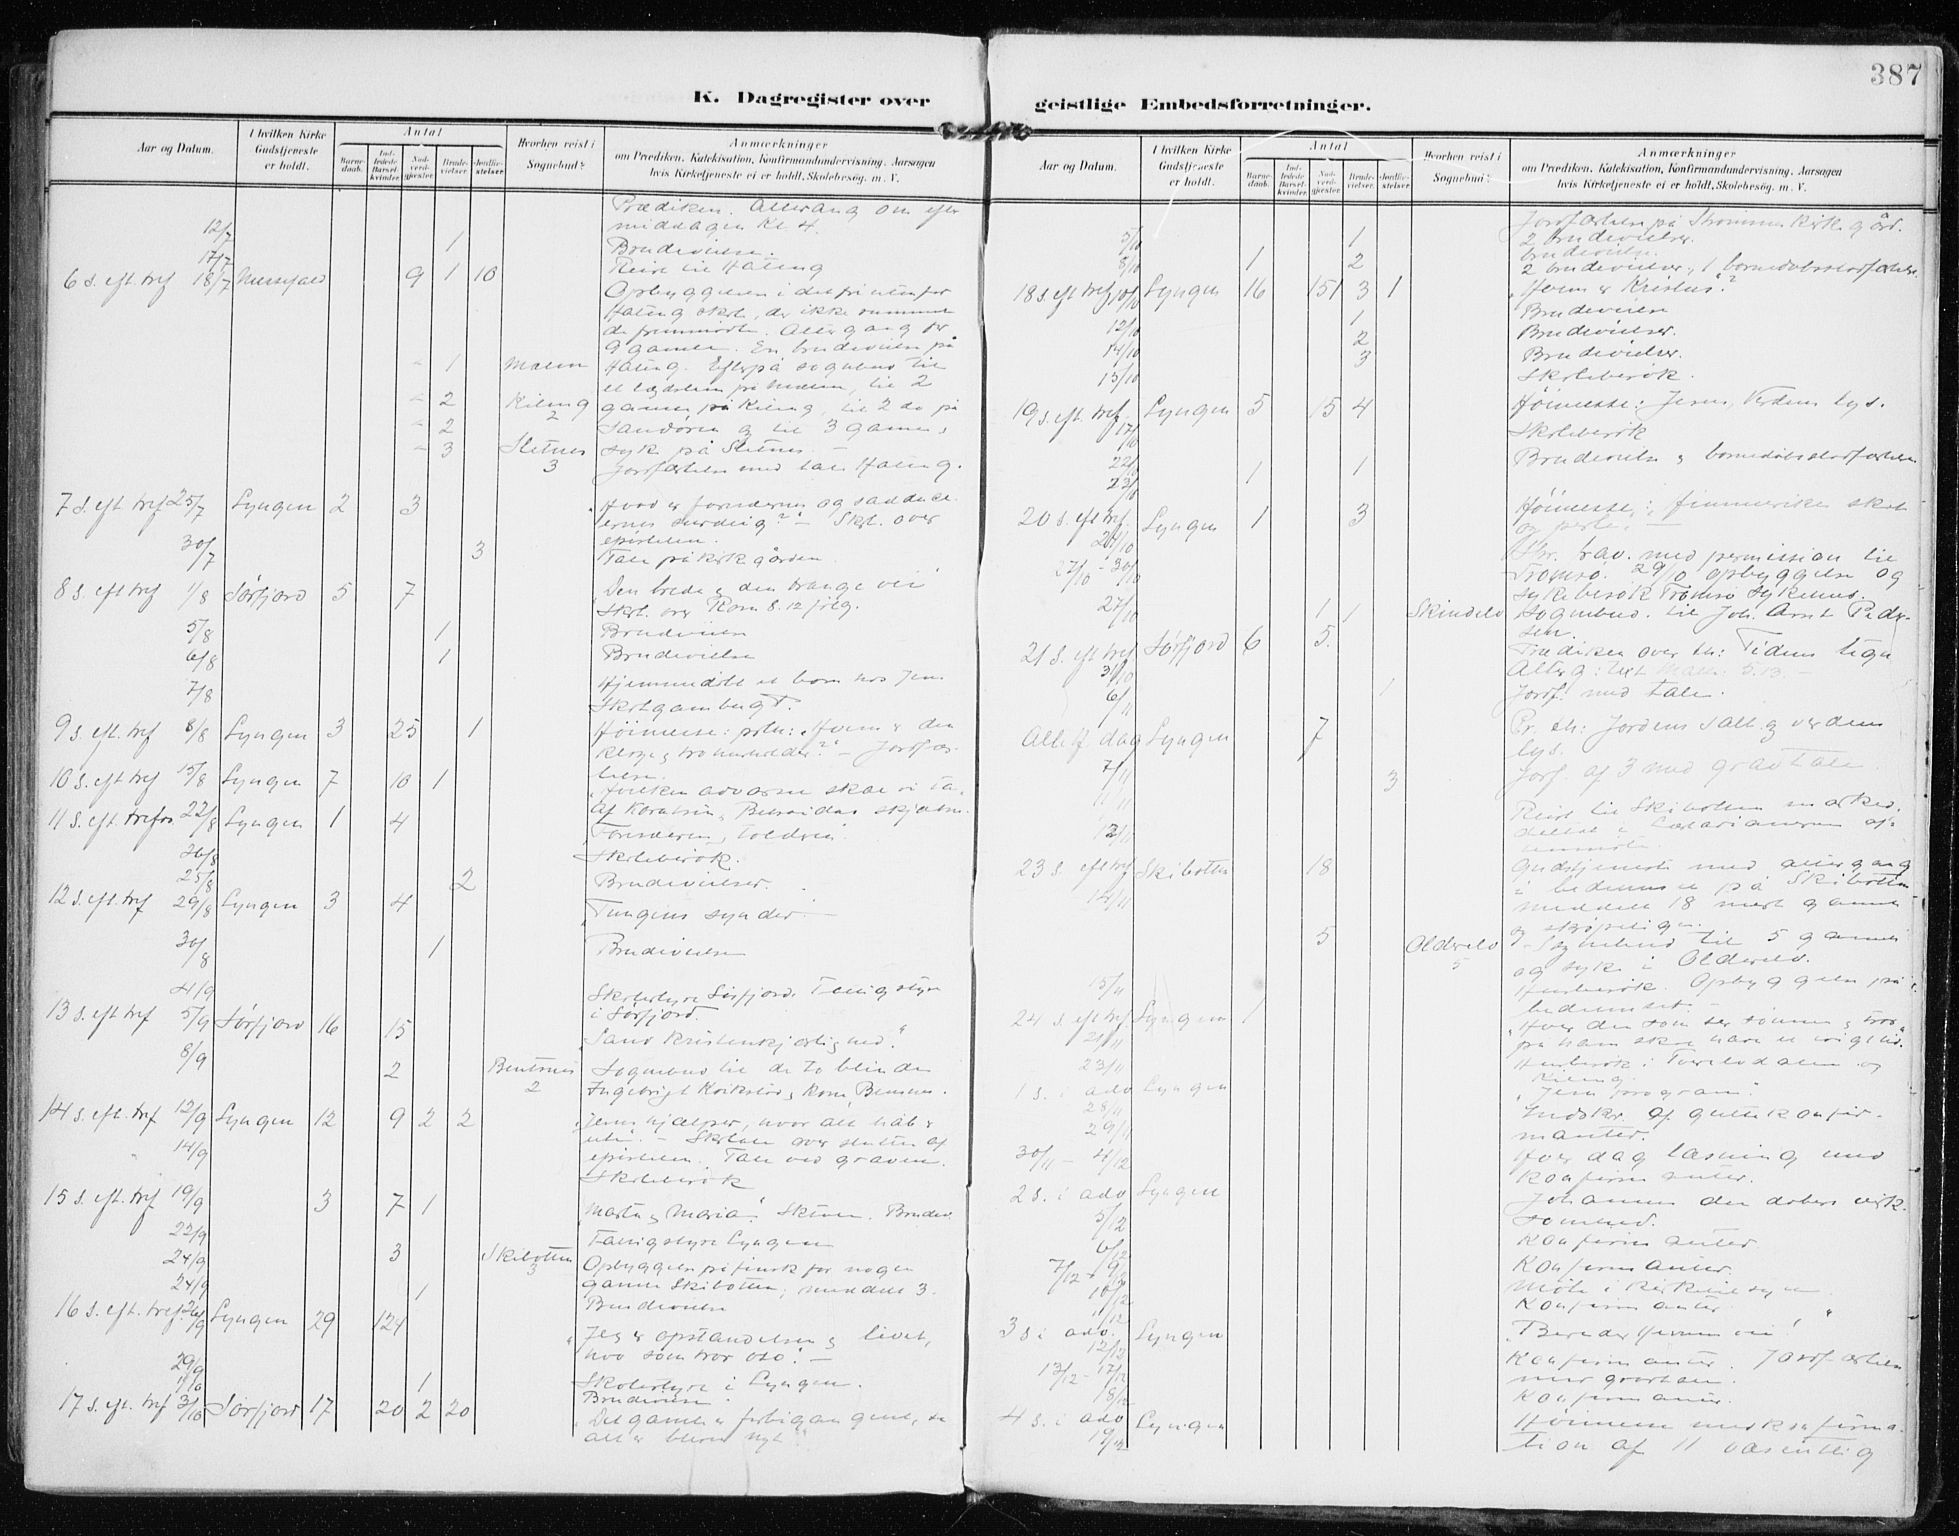 387
K. Dagregister over geistlige Embedsforretninger.
Aar og Datum.
I hvilken Kirke Gudstjeneste er holdt.
Antal
Barnedaab.
Indledede Barselkvinder.
Nadverdgjester
Brudevielser
Jordfæstelser
Hvorhen reist i Sognebud?
Anmærkninger
om Prædiken, Katekisation, Konfirmandundervisning, Aarsagen
hvis Kirketjeneste ei er holdt, Skolebesøg. m. V.
Prædiken. Altergang om efter
12/7 1 middagen Kl. 4.
17/7 Brudevielse.
6 s. eft. tref 18/7 9 1 10 Reise til
Opbyggelsen i det fri utenfor
skole, der ikke rummet
de fremmødte. Altergang for
9 gamle. En brudevielse på
1 Efterpå sognebud til
2 Kileng 2 gamle på Kileng, til 2 do på
2 og til 3 gamle,
3 Sletnes 3 syke på Sletnes.
Jordfæstelse med tale
7 s. eft tref 25/7 Lyngen 2 3 "Hvad er farisæernes og sadducæ-
ernes surdeig?" - Skrt. over
epistelen.
30/7 3 Tale på kirkegården.
8 s. eft tref 1/8 Sørfjord 5 7 "Den brede og den trange vei"
Skrt. over Rom 8.12 følg.
5/8 1 Brudevielse
6/8 1 Brudevielse
7/8 Hjemmedøbt et barn hos
9 s. eft. tref 8/8 Lyngen 3 25 1 Høimesse: "Hvem er den
kloge, tro husholder?" - Jordfæs-
telse.
10 s. eft tref 15/8 Lyngen 7 10 1 "Hvilken advarsel skal vi ta
af Korazins, Betsaidas skjæbne.
11 s. eft. trefor 22/8 Lyngen 1 4 Farisæeren, tolderen.
26/8 Skolebesøk.
25/8 2 Brudevielser.
12 s. eft. tref 29/8 Lyngen 3 4 "Tungens synder. -
30/8 1 Brudevielse
4/9 Skolestyre Sørfjord. Fattigstyre
i Sørfjord.
13 s. eft tref 5/9 Sørfjord 16 15 "Sand kristenkjærlighed."
8/9 2 Bentsnes 2 Sognebud til de to blinde
Ingebrigt
14 s. eft. tref 12/9 Lyngen 12 9 2 2 "Jesus hjælper, hvor alt håb er
ute". - Skrtale over slutten af
epistelen. Tale ved graven.
14/9 Skolebesøk
15 s. eft. tref 19/9 3 7 1 "Marta og Maria". Brudev.
22/9 Fattigstyre Lyngen
24/9 3 Skibotten 3 Opbyggelse på finsk for nogen
gamle Skibotten; meddelt 3.
24/9 1 Brudevielse
16 s. eft. tref. 26/9 Lyngen 29 124 "Jeg er opstandelsen og livet,
hvo som tror osv". -
29/9 Skolestyre i Lyngen.
1/10 1 Brudevielse.
17 s. eft. tref 3/10 Sørfjord 17 20 2 20 "Det gamle er forbigangent, se
alt er blevet nyt".
Aar og Datum.
I hvilken Kirke Gudstjeneste er holdt.
Antal
Barnedaab.
Indledede Barselkvinder.
Nadverdgjester
Brudevielser
Jordfæstelser
Hvorhen reist i Sognebud?
Anmærkninger
om Prædiken, Katekisation, Konfirmandundervisning, Aarsagen
hvis Kirketjeneste ei er holdt, Skolebesøg. m. V.
Jordfæstelse på Strømmen kirkegård.
2 brudevielser.
5/10 1 brudevielse.
8/10 1 2 2 brudevielser, 1 barnedåbsstadfæstelse
18 s. eft tref 10/10 Lyngen 16 151 3 1 "Hvem er Kristus"?
12/10 1 Brudevielse
14/10 2 Brudevielser.
3 Brudevielser.
15/10 Skolebesøk.
19 s. eft. tref. 17/10 Lyngen 5 15 4 Høimesse: Jesus, Verdens lys.
22/10 Skolebesøk
23/10 1 1 Brudevielse og barnedåbsstadfæstelse
20 s. eft tref. 24/10 Lyngen 1 3 Høimesse: himmerikes skat
og perle. -
27/10 - 30/10 med permission til
Tromsø. 29/10 opbyggelse og
sykebesøk Tromsø sykehus.
27/10 1 1 Skindelv Sognebud til Joh. Arnt Peder-
sen.
21 s. eft tref 31/10 Sørfjord 6 5. Prædiken over th: Tidens tegn
Alterg: text Matt: 5.13. -
6/11 1 Jordf. med tale.
Allehf dag 7/11 Lyngen 7 Pr. th: Jordens salt og verdens
lys.
11/11 3 Jordf. af 3 med gravtale.
13/11 Reist til Skibotten marked.
23 s. eft tref 14/11 Skibotten 18 Gudstjeneste med altergang
i bedehuset på Skibotten
meddelt 18 mest gamle
og skrøpelige.
5 Olderelv 5 Sognebud til 5 gamle
og syke i Olderelv.
15/11 Husbesøk. Opbyggelse på
bedehuset. -
24 s. eft tref 21/11 Lyngen 1 "Hver den som ser sønnen og tror
på ham skal have et evigt liv.
23/11 Husbesøk i og
Kileng.
1 s. i adv 28/11 Lyngen "Jesu program".
29/11 Indskr. af konfir-
manter.
30/11 - 4/12 Hver dag læsning med
konfirmanter.
2 s. i adv 5/12 Lyngen Johannes den døbers virk-
somhed.
6/12 Konfirmanter
7/12 - 9/12 Konfirmanter.
10/12 Møte i
11/12 Konfirmanter.
3 s i adv. 12/12 Lyngen "Bered Herrens vei!"
13/12 - 17/12 Konfirmanter. Jordfæstelse
med gravtale.
18/12 Konfirmanter.
4 s. i adv 19/12 Lyngen Høimesse med konfirma-
tion af 11 væsentlig